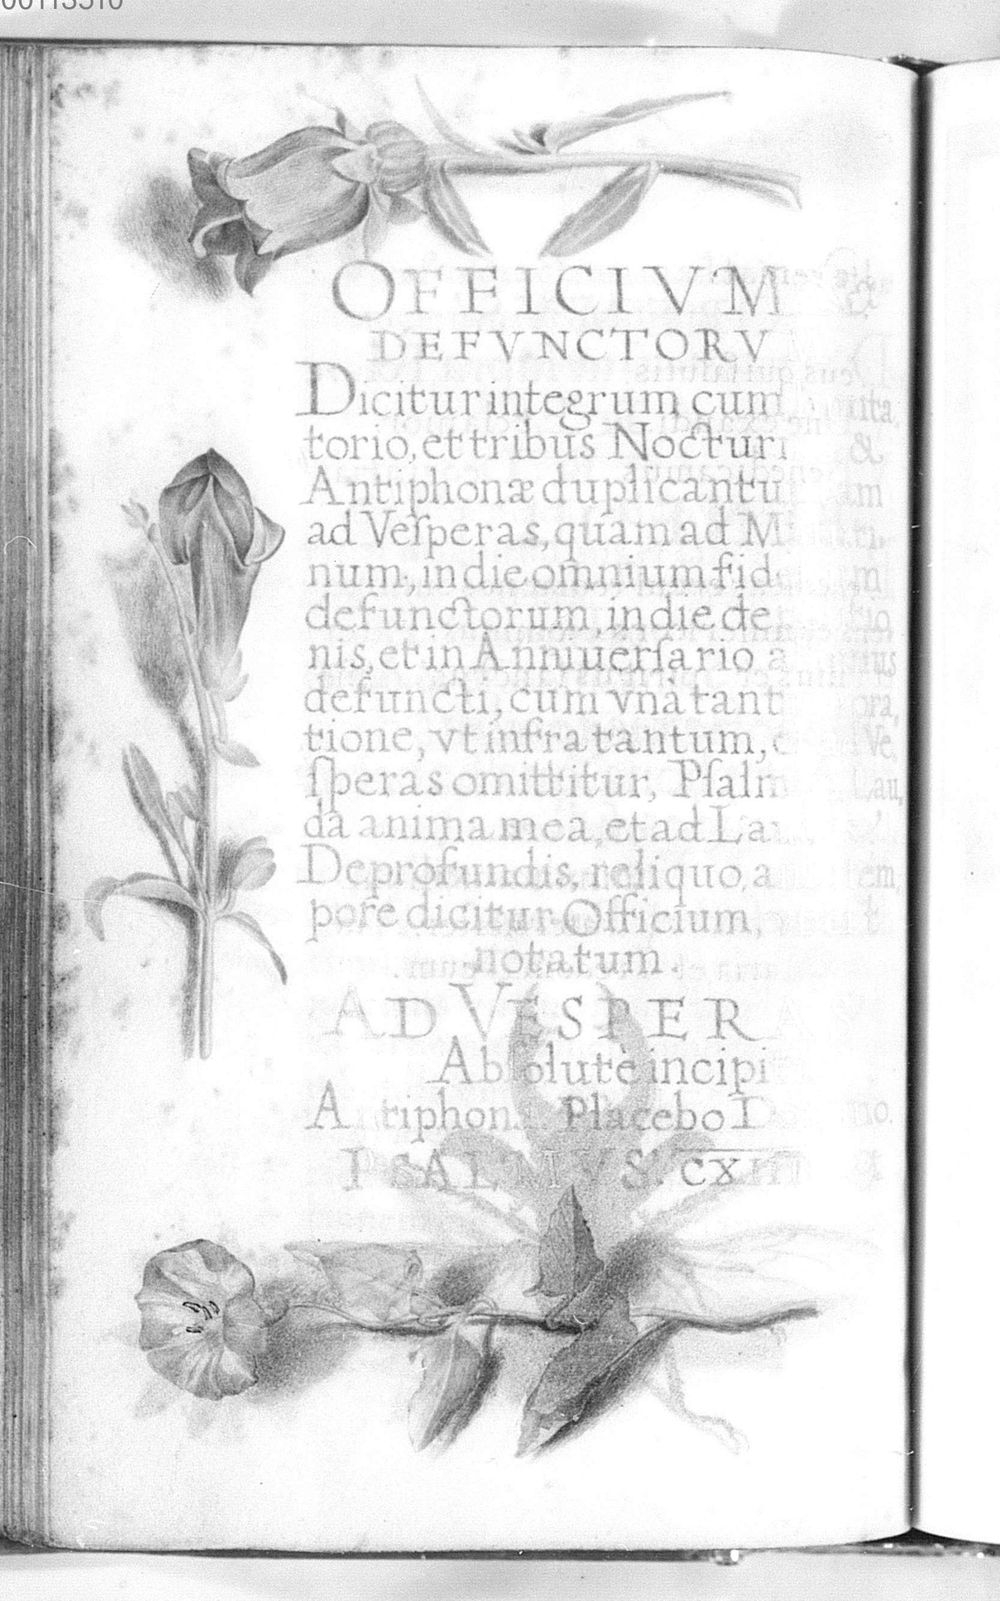 00113510
OFFICIVM
DEFVNCTORV
Dicitur integrum cum
torio, et tribus Noctur &
Antiphonæ duplicantu am
ad Veſperas, quam ad M
num, in die omnium fid m
defunctorum, in die de tio
nis, et in Anniuerſario a
defuncti, cum vna tant ora,
tione, vt infra tantum, Ve,
ſperas omittitur, Pſalm Lau,
da anima mea, et ad La
De profundis, reliquo, a tem,
pore dicitur Officium, t
notatum.
AD VESPERA
Abſolute incipi
Antiphon Placebo D no.
PSALMVS. CXIIII